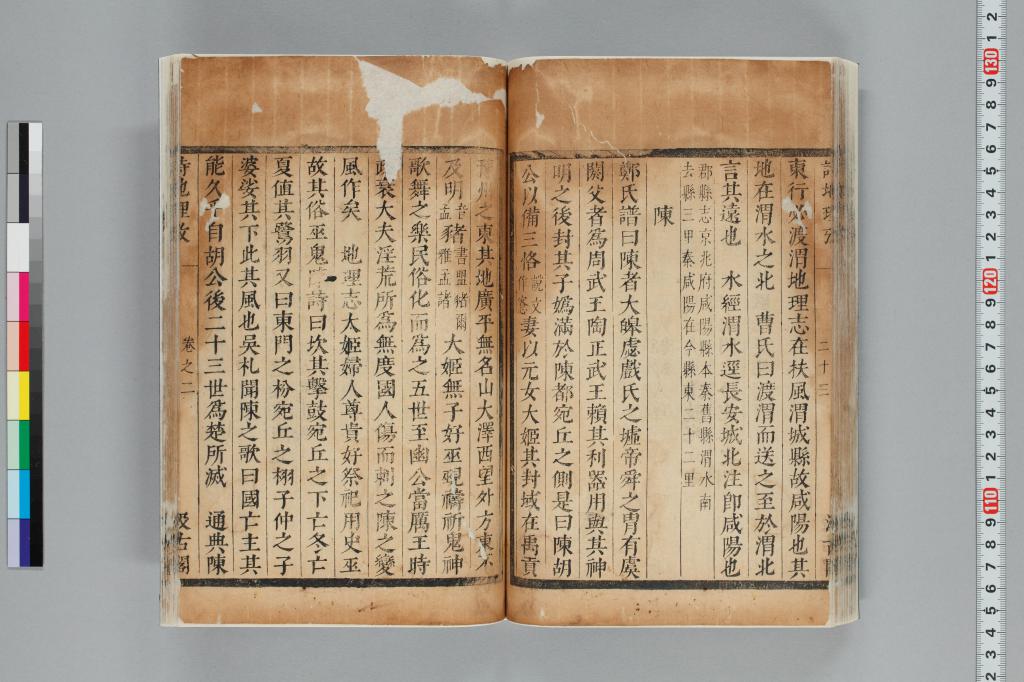 東行必渡渭地理志在扶風渭城縣故咸陽也其
地在渭水之北　曹氏曰渡渭而送之至於渭北
言其遠也　水經渭水逕長安城北注卽咸陽也
郡縣志京兆府咸陽縣本秦舊縣渭水南
去縣三里秦咸陽在今縣東二十二里
陳
鄭氏譜曰陳者大皞虙戲氏之墟帝舜之胄有虞
閼父者爲周武王陶正武王賴其利器用與其神
明之後封其子嬀滿於陳都宛丘之側是曰陳胡
公以備三恪說文作愙妻以元女大姬其封域在禹貢
豫州之東其地廣平無名山大澤西望外方東不
及明音孟豬書盟豬爾雅孟諸　大姬無子好巫覡禱祈鬼神
歌舞之樂民俗化而爲之五世至幽公當厲王時
政衰大夫淫荒所爲無度國人傷而刺之陳之變
風作矣　地理志太姬婦人尊貴好祭祀用史巫
故其俗巫鬼陳詩曰坎其擊鼓宛丘之下亡冬亡
夏値其鷺羽又曰東門之枌宛丘之栩子仲之子
婆娑其下此其風也吳札聞陳之歌曰國亡主其
能久乎自胡公後二十三世爲楚所滅　通典陳
詩地理攷
卷之二
汲古閣